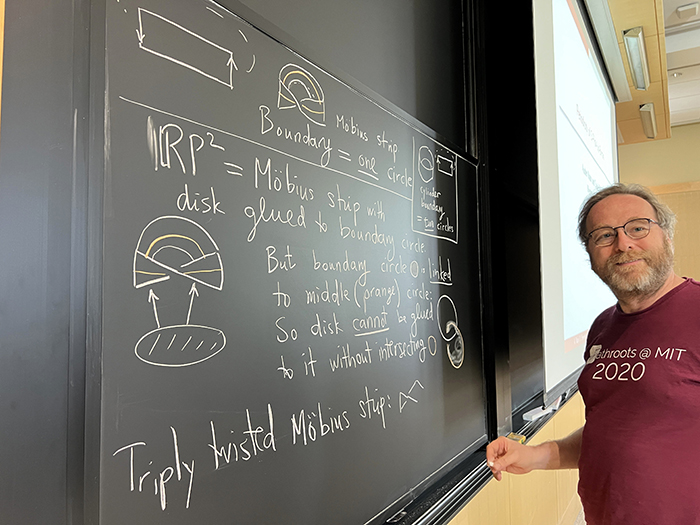 Möbius strip
Boundary = one circle
RP² = Möbius strip with
disk glued to boundary circle
cylinder
boundary
= two circles
But boundary circle is linked
to middle (orange) circle:
So disk cannot be glued
to it without intersecting
Triply twisted Möbius strip:
@ MIT
2020